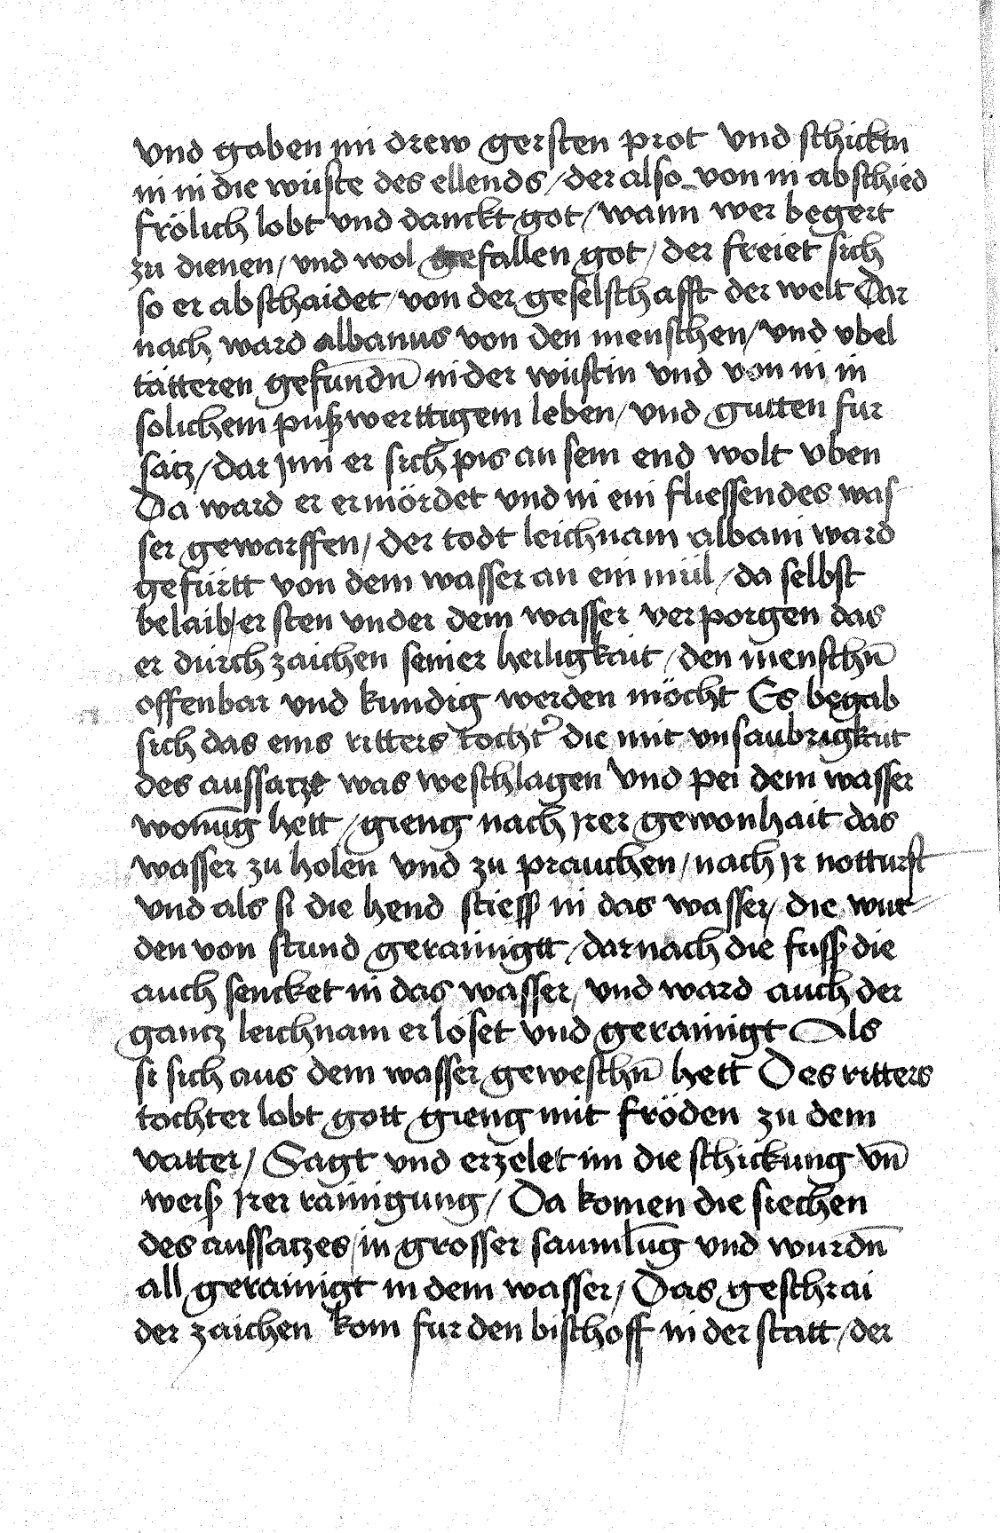 vnd gaben im drew gersten prot vnd schicktn
in in die wüste des ellends / der also von in abschied
frölich lobt vnd danckt got / wann wer begert
zu dienen / vnd wol gefallen got / der freiet sich
so er abschaidet / von der geselschafft der welt Dar
nach ward albanus von den menschen / vnd vbel
tätteren gefundn̄ in der wüstin vnd von in in
solichem pußwerttigem leben / vnd gutten fur
sätz / dar jnn er sich pis an sein end wolt vben
Da ward er ermördet vnd in ein fliessendes was
ser gewarffen / der todt leichnam albani ward
gefürtt von dem wasser an ein mül / da selbst
belaib / er sten vnder dem wasser verporgen das
er durch zaichen seiner heiligkait / den menschn̄
offenbar vnd kundig werden möcht Es begab
sich das eins ritters tocht̓ die mit vnsaubrigkait
des aussatze was weschlagen vnd pei dem wasser
wonūg hett / gieng nach jrer gewonhait das
wasser zu holen vnd zu prauchen / nach jr notturft
vnd als si die hend stiess in das wasser / die wur
den von stund gerainigtt / darnach die fuss die
auch sencket in das wasser / vnd ward auch der
gantz leichnam erlöset vnd gerainigt Als
si sich aus dem wasser geweschn̄ hett Des ritters
tochter lobt gott gieng mit fröden zu dem
vatter / Sagt vnd erzelet im die schickung vn̄
weiß jrer rainigung / Da komen die siechen
des aussatzes / in grosser samlūg vnd wurdn̄
all gerainigt in dem wasser / Das geschrai
der zaichen kom fur den bischoff in der statt / der